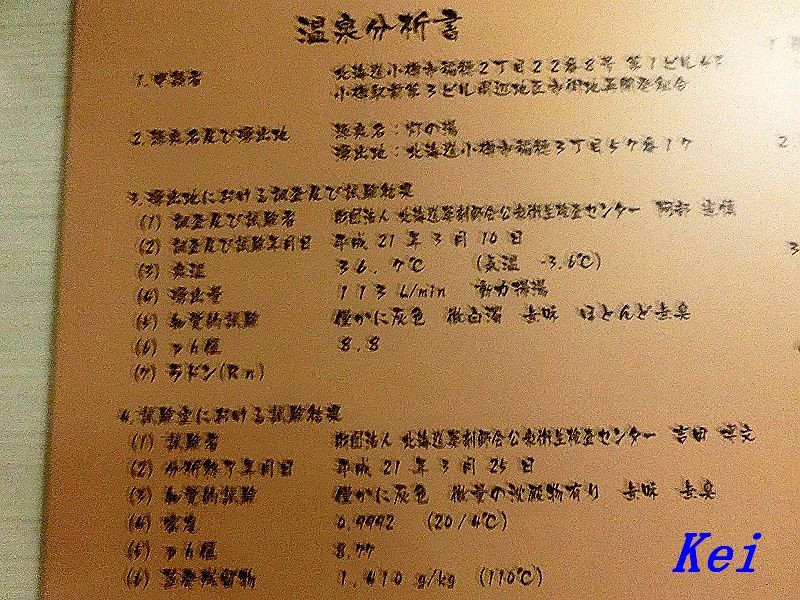 温泉分析書
1. 申請者 北海道小樽市稲穂2丁目22番8号 第1ビル4F
小樽駅前第3ビル周辺地区市街地再開発組合
2. 源泉名及び湧出地 源泉名：灯の湯
湧出地：北海道小樽市稲穂3丁目57番17
3. 湧出地における調査及び試験結果
(1) 調査及び試験者 財団法人 北海道薬剤師会公衆衛生検査センター 阿部
(2) 調査及び試験年月日 平成 21 年 3 月 10 日
(3) 泉温 36.7℃ (気温 -3.6℃)
(4) 湧出量 113 L/min 動力揚湯
(5) 知覚的試験 僅かに灰色 微白濁 無味 ほとんど無臭
(6) pH値 8.8
(7) ラドン(Rn)
4. 試験室における試験結果
(1) 試験者 財団法人 北海道薬剤師会公衆衛生検査センター 吉田
(2) 分析終了年月日 平成 21 年 3 月 25 日
(3) 知覚的試験 僅かに灰色 微量の沈殿物有り 無味 無臭
(4) 密度 0.9992 (20/4℃)
(5) pH値 8.77
(6) 蒸発残留物 1.410 g/kg (110℃)
Kei